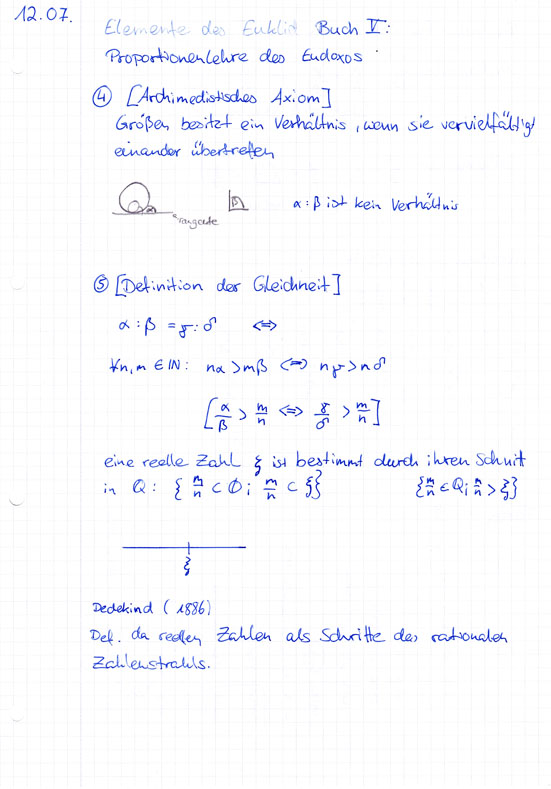 12.07.
Elemente des Euklid Buch V:
Proportionenlehre des Eudoxos
④ [Archimedistisches Axiom]
Größen besitzt ein Verhältnis, wenn sie vervielfältigt
einander übertreffen
α
Tangente
β
α : β ist kein Verhältnis
⑤ [Definition der Gleichheit]
α : β = γ : δ ⇔
∀n, m ∈ ℕ: nα > mβ ⇔ nγ > nδ
[α/β > m/n ⇔ γ/δ > m/n]
eine reelle Zahl ξ ist bestimmt durch ihren Schnitt
in Q: { m/n ⊂ Q; m/n < ξ} {m/n ∈ Q; m/n > ξ}
ξ
Dedekind (1886)
Def. da reellen Zahlen als Schritte des rationalen
Zahlenstrahls.